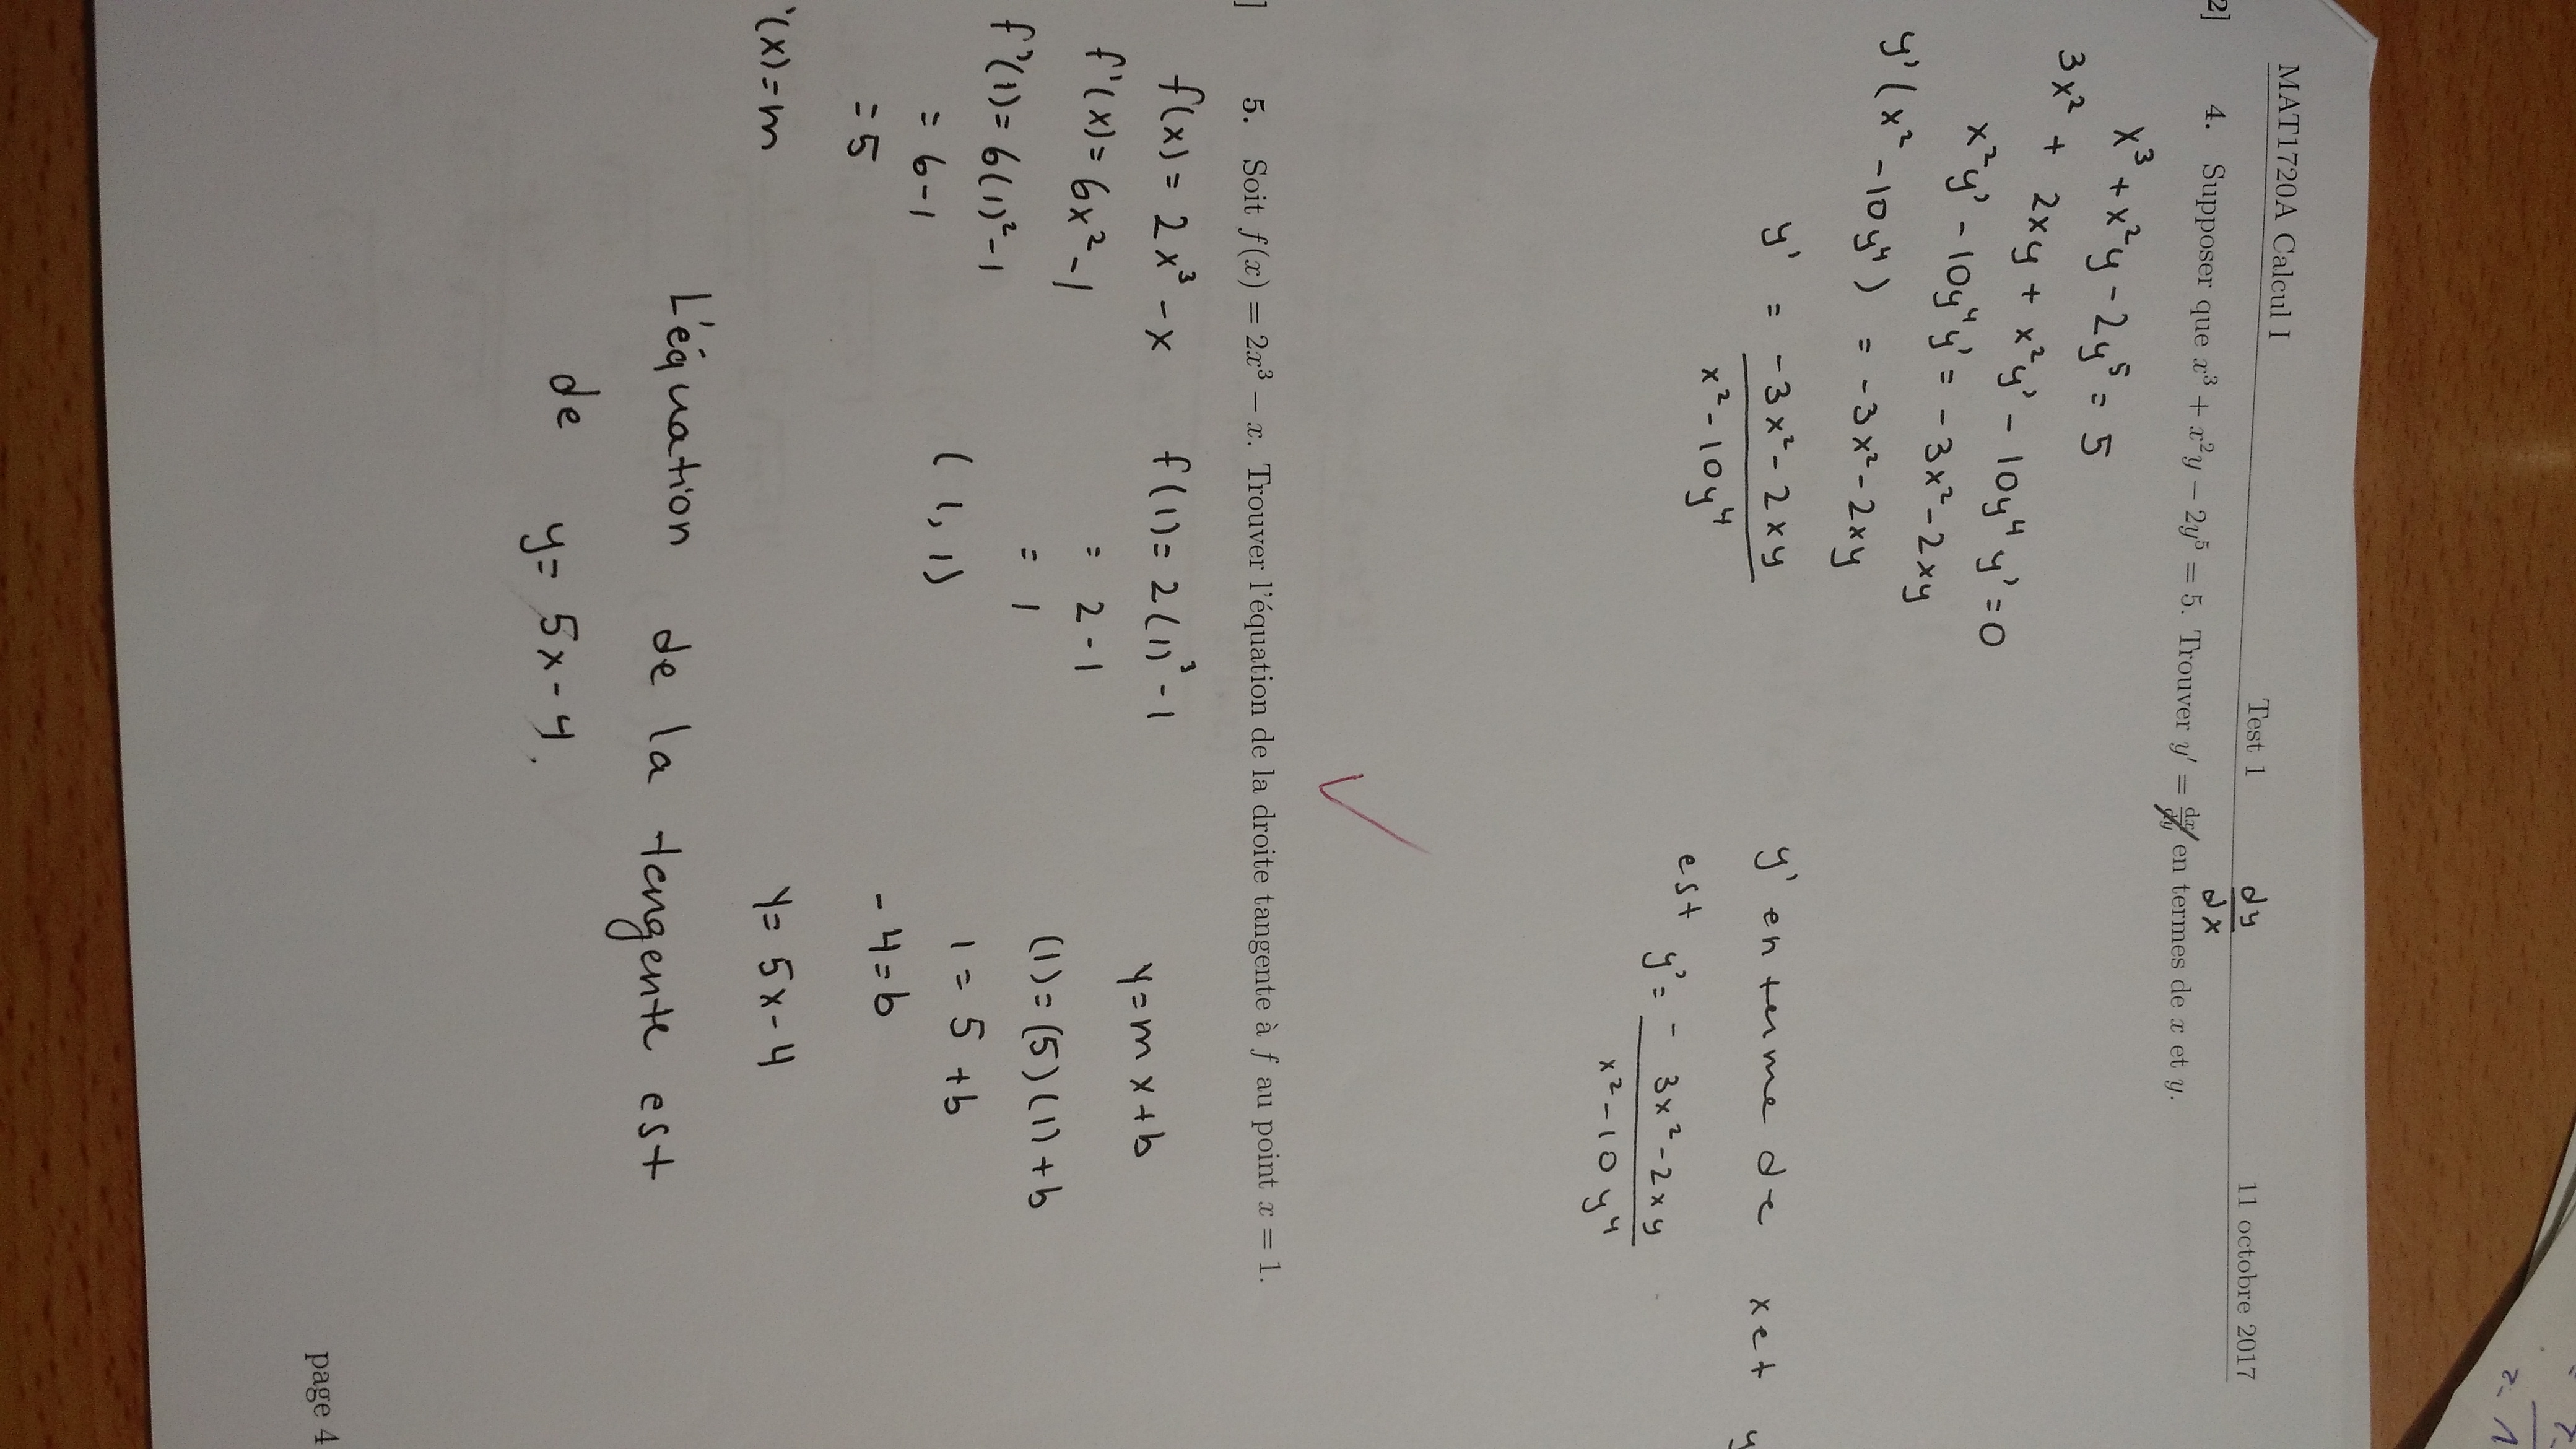 MAT1720A Calcul I Test 1 11 octobre 2017
dy/dx
2] 4. Supposer que x³ + x²y − 2y⁵ = 5. Trouver y′ = dx/dy en termes de x et y.
x³ + x²y - 2y⁵ = 5
3x² + 2xy + x²y' - 10y⁴y' = 0
x²y' - 10y⁴y' = -3x² - 2xy
y'(x² - 10y⁴) = -3x² - 2xy
y' = (-3x² - 2xy)/(x² - 10y⁴)
y' en terme de x et y
est y' = (- 3x² - 2xy)/(x² - 10y⁴)
] 5. Soit f(x) = 2x³ − x. Trouver l'équation de la droite tangente à f au point x = 1.
f(x) = 2x³ - x f(1) = 2(1)³ - 1 y = mx + b
f'(x) = 6x² - 1 = 2 - 1 (1) = (5)(1) + b
f'(1) = 6(1)² - 1 = 1 1 = 5 + b
= 6 - 1 (1, 1) -4 = b
= 5
'(x) = m y = 5x - 4
L'équation de la tangente est
de y = 5x - 4.
page 4